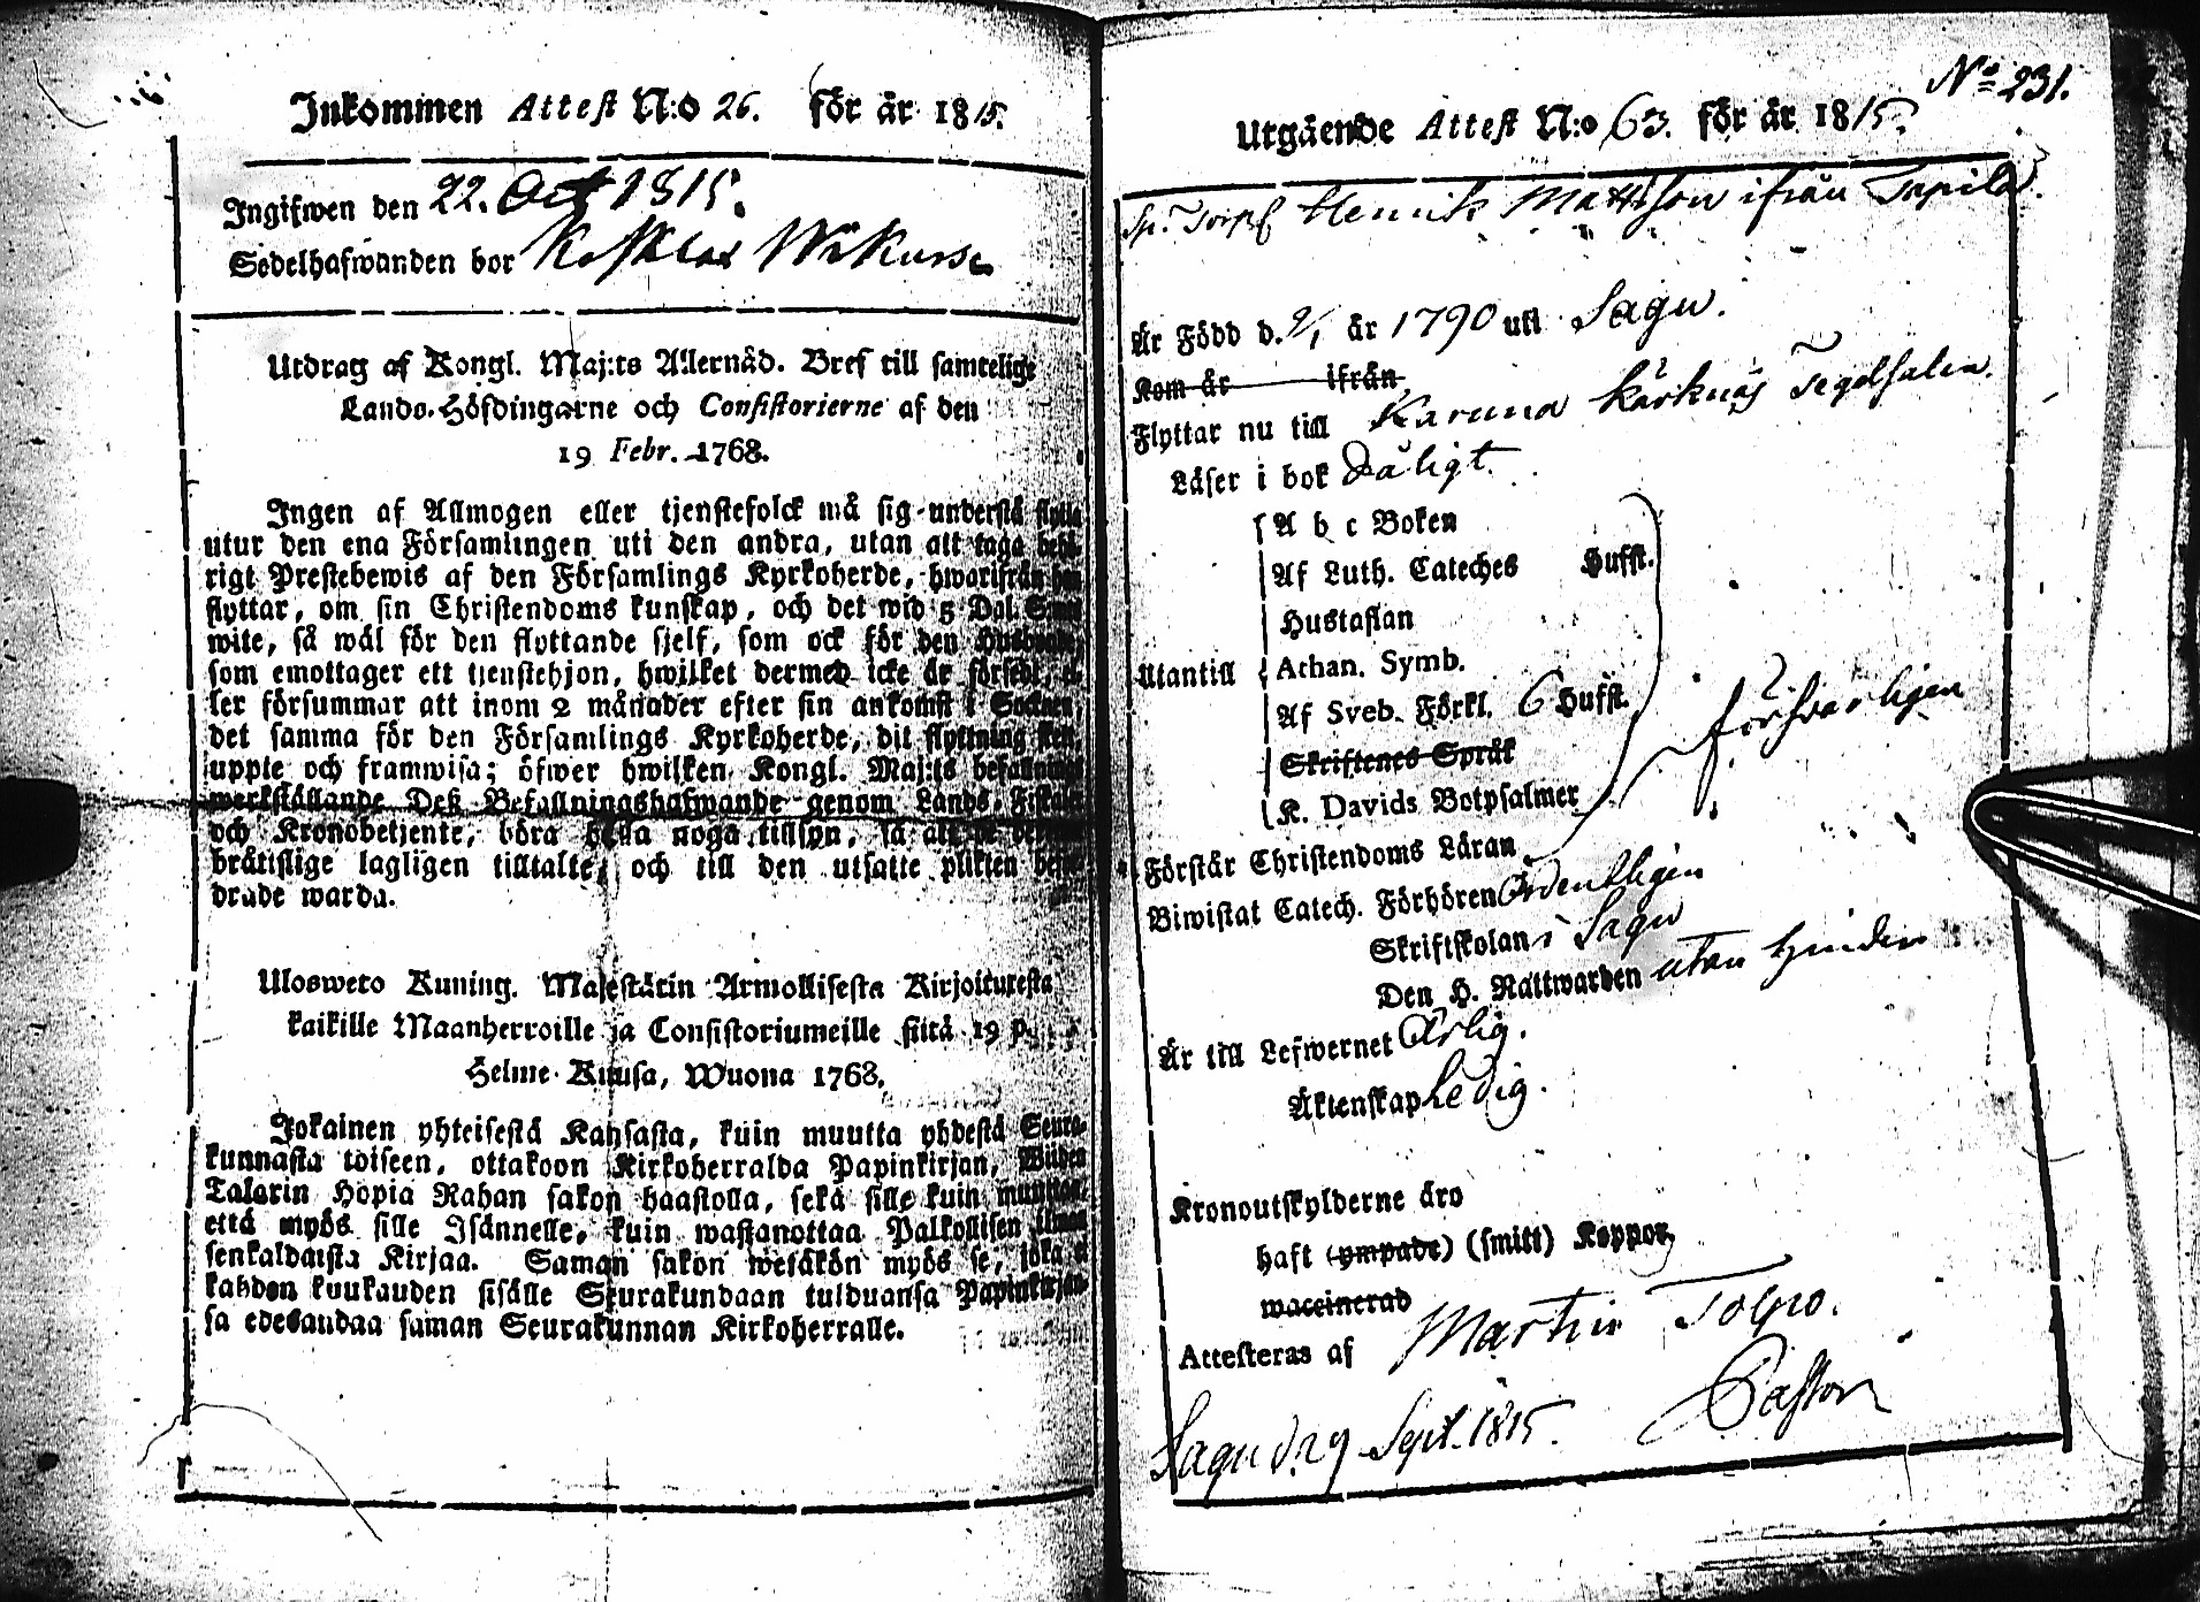 Inkommen Attest N:o 26. för år 1815.
Ingifwen den 22. Oct 1815.
Sedelhafwanden bor
Utdrag af Kongl. Maj:ts Allernåd. Bref till samtelige
Lands-Höfdingarne och Consistorierne af den
19 Febr. 1768.
Ingen af Allmogen eller tjenstefolck må sig understå flytta
utur den ena Församlingen uti den andra, utan att taga behö-
rigt Prestebewis af den Församlings Kyrkoherde, hwarifrån han
flyttar, om sin Christendoms kunskap, och det wid 5 Dal. Smt
wite, så wäl för den flyttande sjelf, som ock för den
som emottager ett tjenstehjon, hwilket dermed icke är försedt, el-
ler försummar att inom 2 månader efter sin ankomst i Socknen,
det samma för den Församlings Kyrkoherde, dit flyttning sker,
uppte och framwisa; öfwer hwilken Kongl. Maj:ts befallnings
werkställande Deß Befallningshafwande genom Lands-Fiskaler
och Kronobetjente, böra hålla noga tillsyn, så att
bråttslige lagligen tilltalte, och till den utsatte plikten befor-
drade warda.
Ulosweto Kuning. Majestätin Armollisesta Kirjoituxesta
kaikille Maanherroille ja Consistoriumeille siitä 19 p.
Helme-Kuusa, Wuona 1768.
Jokainen yhteisestä Kansasta, kuin muutta yhdestä Seura-
kunnasta toiseen, ottakoon Kirkoherralda Papinkirjan, Wiiden
Talarin Hopia Rahan sakon haastolla, sekä sille kuin muuttaa,
että myös sille Isännelle, kuin wastanottaa Palkollisen ilman
senkaldaista Kirjaa. Saman sakon wetäkön myös se, joka ei
kahden kuukauden sisälle Seurakundaan tulduansa Papinkirjan-
sa edesandaa saman Seurakunnan Kirkoherralle.
No 231.
Utgående Attest N:o 63. för år 1815.
Henrik Mattsson ifrån Tapila
Är Född d. 9/1 år 1790 uti Sagu.
Kom år ifrån
Flyttar nu till Karuna Kärknäs Tegelsalen.
Läser i bok Dåligt.
A b c Boken
Af Luth. Cateches Hufst.
Hustaflan
Utantill Athan. Symb.
Af Sveb. Förkl. 6 Hufst.
Skriftenes Språk
K. Davids Botpsalmer
försvarligen
Förstår Christendoms Läran
Biwistat Catech. Förhören Ordentligen
Skriftskolan i Sagu
Den H. Nattwarden utan hinder
Är till Lefwernet Ärlig.
Äktenskap Ledig.
Kronoutskylderne äro
haft (ympade) (smitt) Koppor,
waccinerad
Attesteras af Martin Tolpo.
Pastor
Sagu d. 29 Sept. 1815.